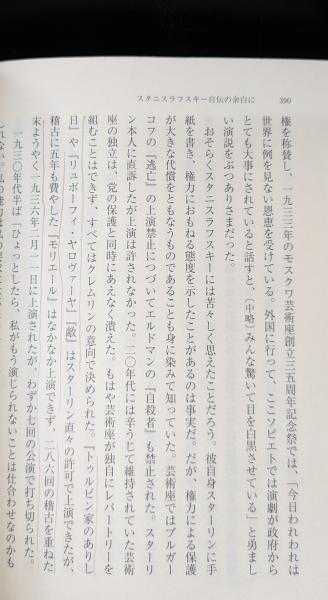 スタニスラフスキー自伝の余白に
390
権を称賛し、一九三三年のモスクワ芸術座創立三五周年記念祭では、「今日われわれは
世界に例を見ない恩恵を受けている。外国に行って、ここソビエトでは演劇が政府から
とても大事にされていると話すと、〔中略〕みんな驚いて目を白黒させている」と勇まし
い演説をぶつありさまだった。
おそらくスタニスラフスキーには苦々しく思えたことだろう。彼自身スターリンに手
紙を書き、権力におもねる態度を示したことがあるのは事実だ。だが、権力による保護
が大きな代償をともなうものであることも身に染みて知っていた。芸術座ではブルガー
コフの『逃亡』の上演禁止につづいてエルドマンの『自殺者』も禁止された。スターリ
ン本人に直訴したが上演は許されなかった。二〇年代には辛うじて維持されていた芸術
座の独立は、党の保護と同時にあえなく潰えた。もはや芸術座が独自にレパートリーを
組むことはできず、すべてはクレムリンの意向で決められた。『トゥルビン家のありし
日』や『リュボーフィ・ヤロヴァーヤ』『敵』はスターリン直々の許可で上演できたが、
稽古に五年も費やした『モリエール』はなかなか上演できず、二八六回の稽古を重ねた
末ようやく一九三六年二月一一日に上演されたが、わずか七回の公演で打ち切られた。
一九三〇年代半ば「ひょっとしたら、私がもう演じられないことは仕合わせなのかも